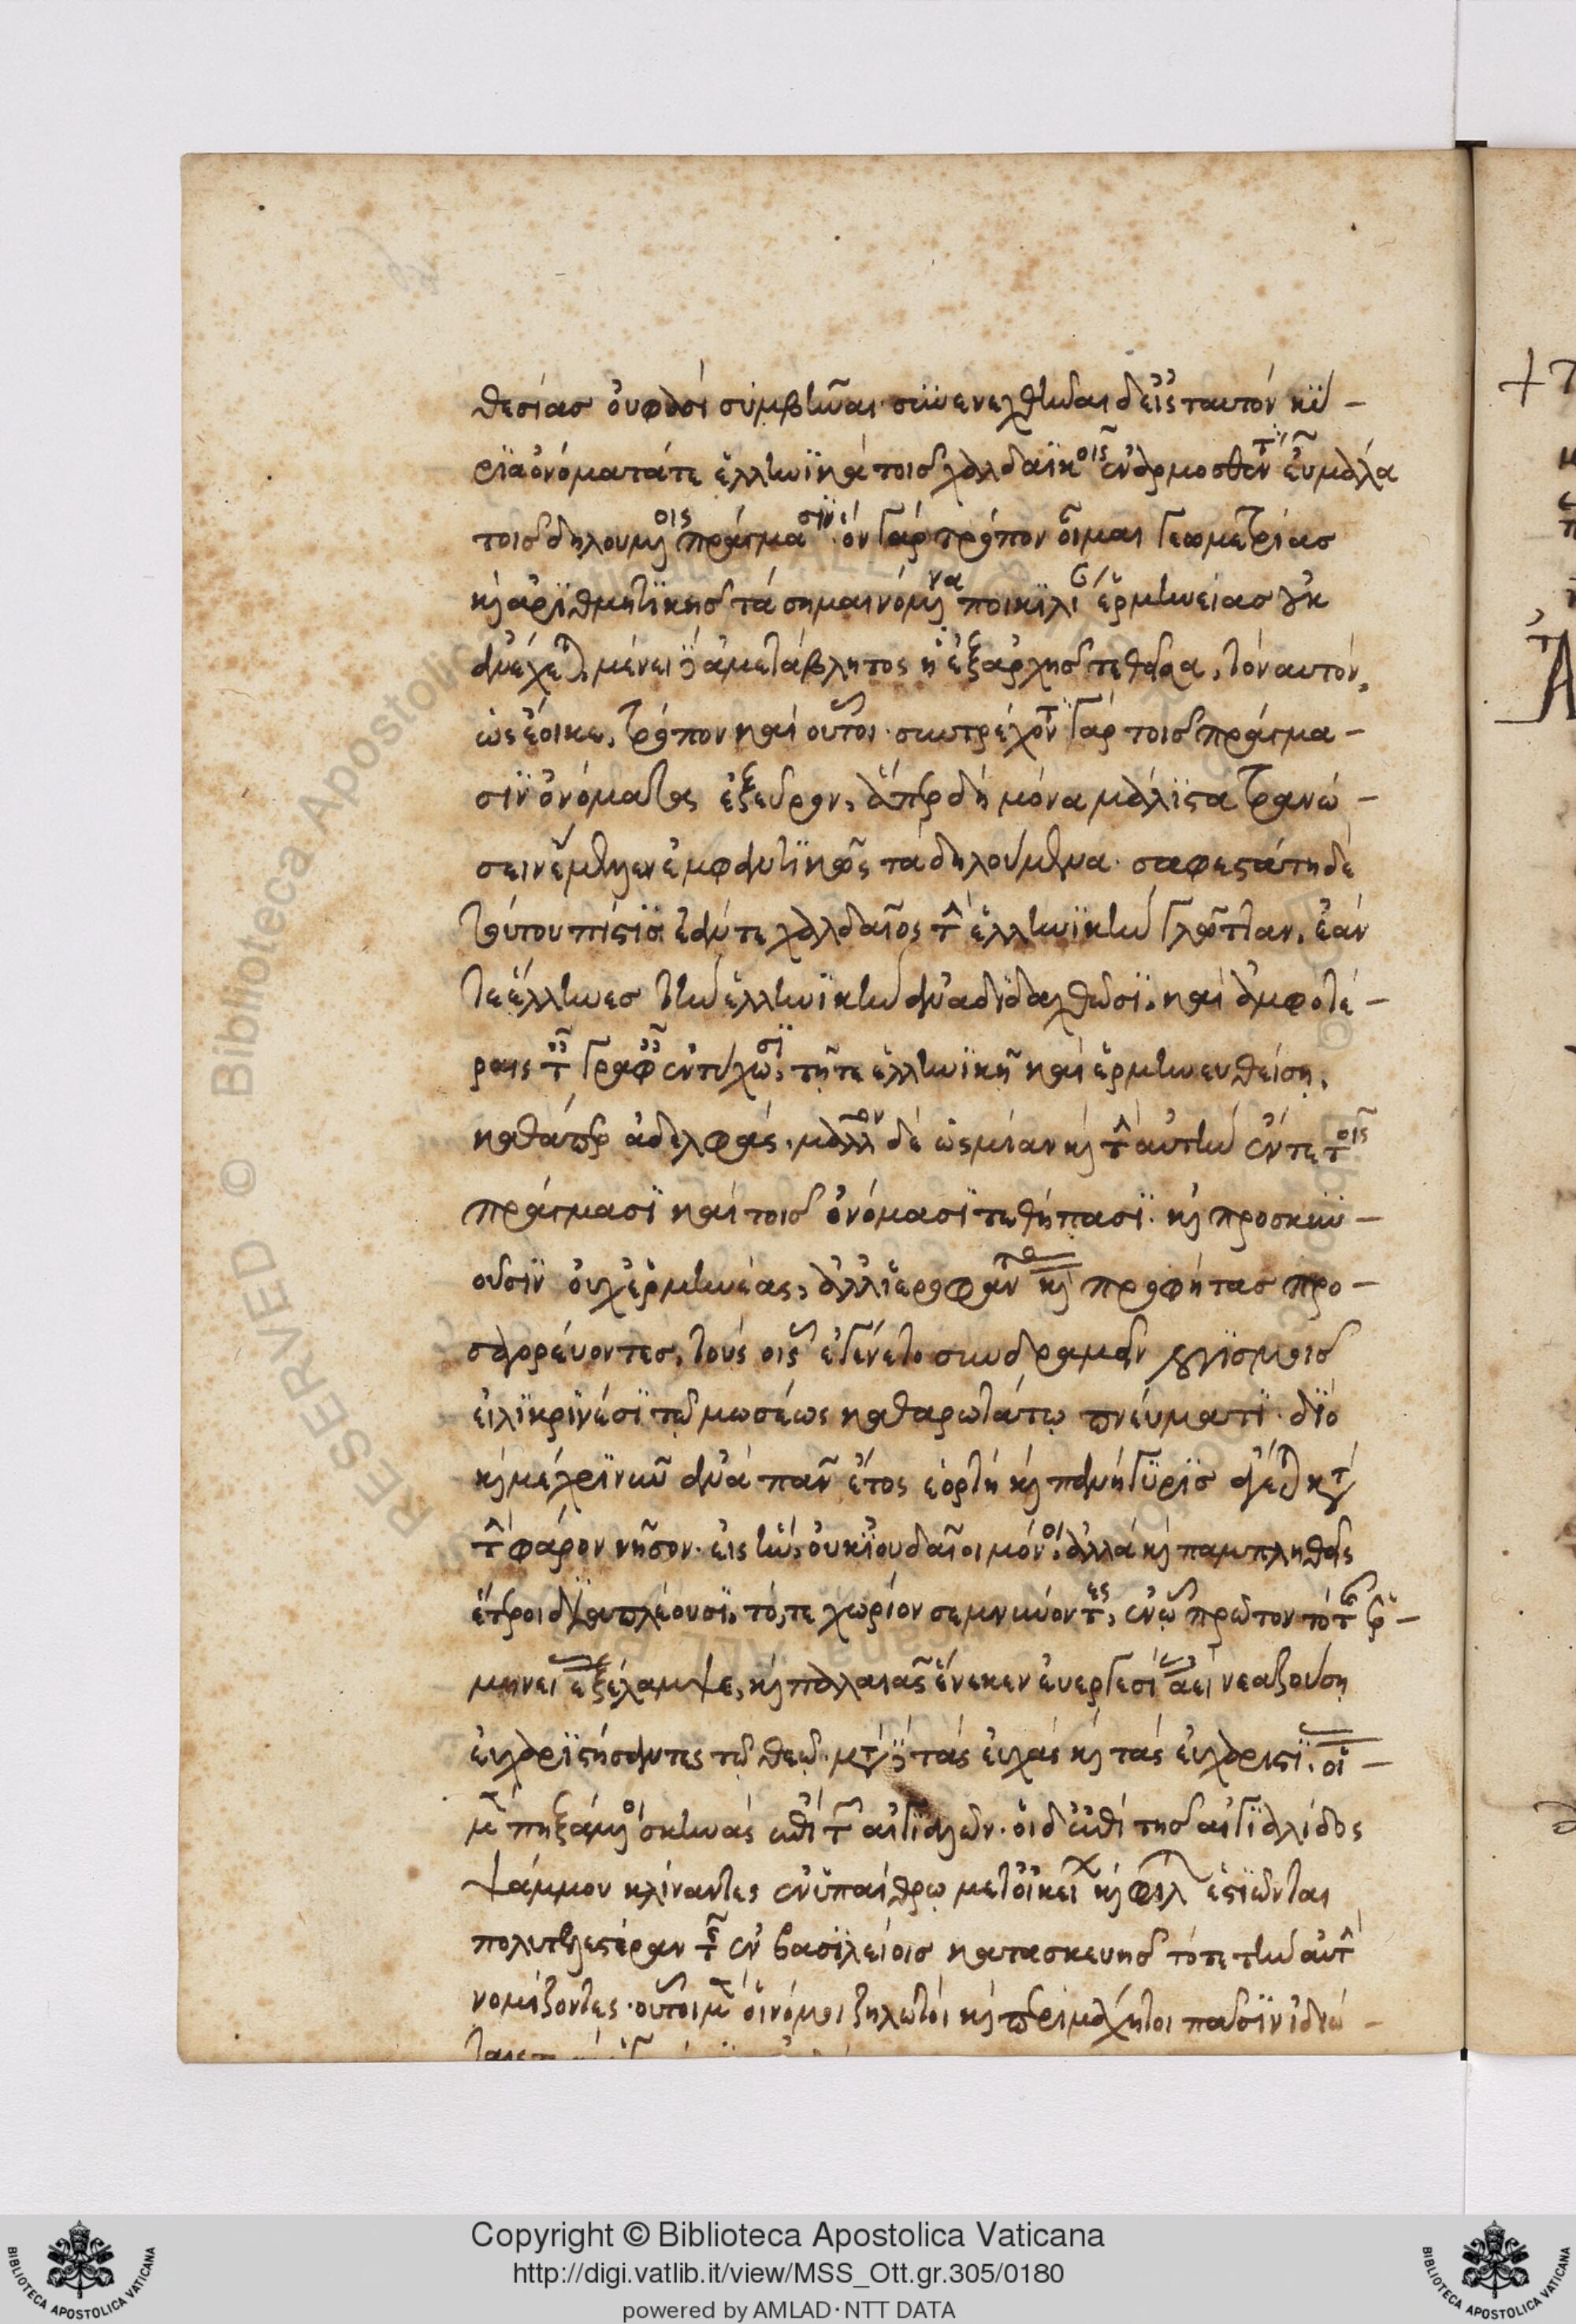 θεσίας οὔ φασι συμβῆναι· συνενεχθῆναι δ' εἰς ταυτὸν κύ-
ρια ὀνόματα τὰ τε ἑλληνικὰ τοῖς χαλδαϊκοῖς ἐναρμοσθέντα εὖ μάλα
τοῖς δηλουμένοις πράγμασιν· ὃν γὰρ τρόπον οἶμαι γεωμετρίας
καὶ ἀριθμητικῆς τὰ σημαινόμενα ποικιλίας ἑρμηνείας οὐκ
ἀνέχεται, μένει δὲ ἀμετάβλητος ἡ ἐξ ἀρχῆς τεθεῖσα, τὸν αὐτόν,
ὡς ἔοικε, τρόπον καὶ οὗτοι συντρέχοντα γὰρ τοῖς πράγμα-
σιν ὀνόματα ἐξεῦρον, ἅπερ δὴ μόνα μάλιστα τρανώ-
σειν ἔμελλεν ἐμφαντικῶς τὰ δηλούμενα· σαφεστάτη δὲ
τούτου πίστις ἐάν τε χαλδαῖος τὴν ἑλληνικὴν γλῶτταν, ἐάν
τε ἕλληνες τὴν ἑλληνικὴν ἀναδιδαχθῶσι, καὶ ἀμφοτέ-
ραις ταῖς γραφαῖς ἐντύχωσι, τῇ τε ἑλληνικῇ καὶ ἑρμηνευθείσῃ,
καθάπερ ἀδελφὰς, μᾶλλον δὲ ὡς μίαν καὶ τὴν αὐτὴν ἔν τε τοῖς
πράγμασι καὶ τοῖς ὀνόμασι τεθήπασι· καὶ προσκυν-
οῦσιν οὐχ ἑρμηνέας, ἀλλ' ἱεροφάντας καὶ προφήτας προ-
σαγορεύοντες, τοὺς οἷς ἐγένετο συνδραμεῖν λογισμοῖς
εἰλικρινέσι τῷ μωσέως καθαρωτάτῳ πνεύματι· διὸ
καὶ μέχρι νῦν ἀνὰ πᾶν ἔτος ἑορτὴ καὶ πανήγυρις ἄγεται κατὰ
τὴν φάρον νῆσον· εἰς ἣν, οὐκ ἰουδαῖοι μόνοι, ἀλλὰ καὶ παμπληθεῖς
ἕτεροι διαπλέουσι, τό, τε χωρίον σεμνύνοντες, ἐν ᾧ πρῶτον τὸ τῆς ἑρ-
μηνείας ἐξέλαμψε, καὶ παλαιᾶς ἕνεκεν εὐεργεσίας ἀεὶ νεαζούσης
εὐχαριστήσοντες τῷ θεῷ· μετὰ δὲ τὰς εὐχὰς καὶ τὰς εὐχαριστίας, οἱ
μὲν πηξάμενοι σκηνὰς ἐπὶ τῶν αἰγιαλῶν· οἱ δ' ἐπὶ τῆς αἰγιαλίδος
ψάμμου κλίναντες ἐν ὑπαίθρῳ μετ' οἰκείων καὶ φίλων ἑστιῶνται
πολυτελεστέραν τῆς ἐν βασιλείοις κατασκευῆς τότε τὴν ἀκτὴν
νομίζοντες· οὕτω μὲν οἱ νόμοι ζηλωτοὶ καὶ περιμάχητοι πᾶσιν ἰδιώ-